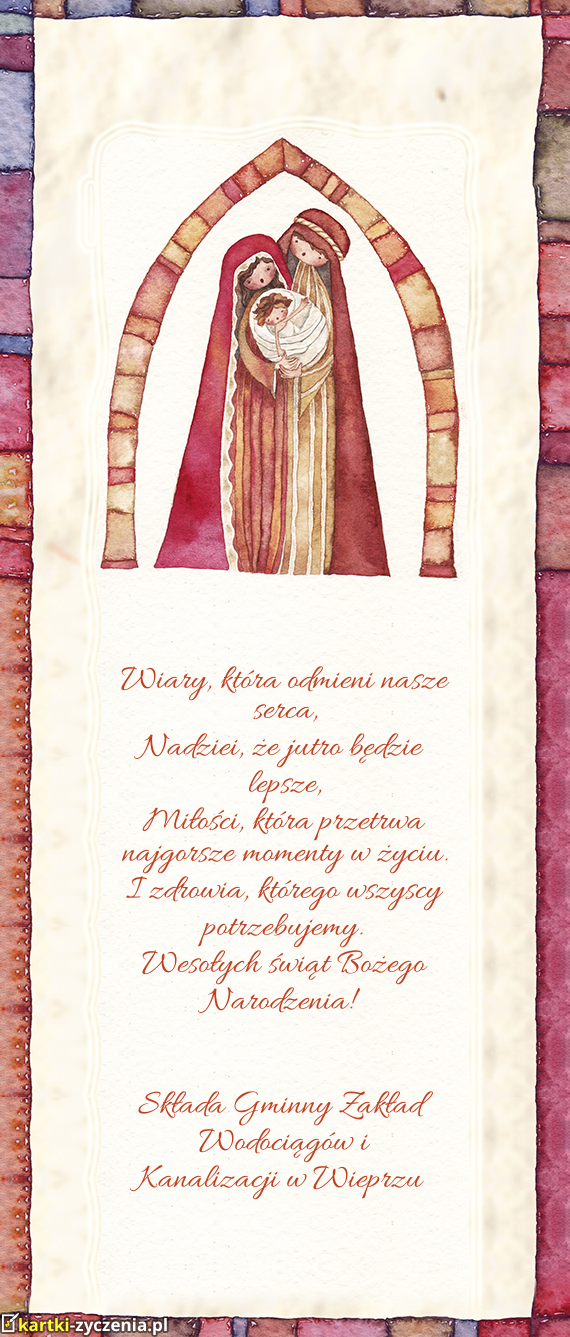 Wiary, która odmieni nasze
serca,
Nadziei, że jutro będzie
lepsze,
Miłości, która przetrwa
najgorsze momenty w życiu.
I zdrowia, którego wszyscy
potrzebujemy.
Wesołych świąt Bożego
Narodzenia!
Składa Gminny Zakład
Wodociągów i
Kanalizacji w Wieprzu
kartki-zyczenia.pl